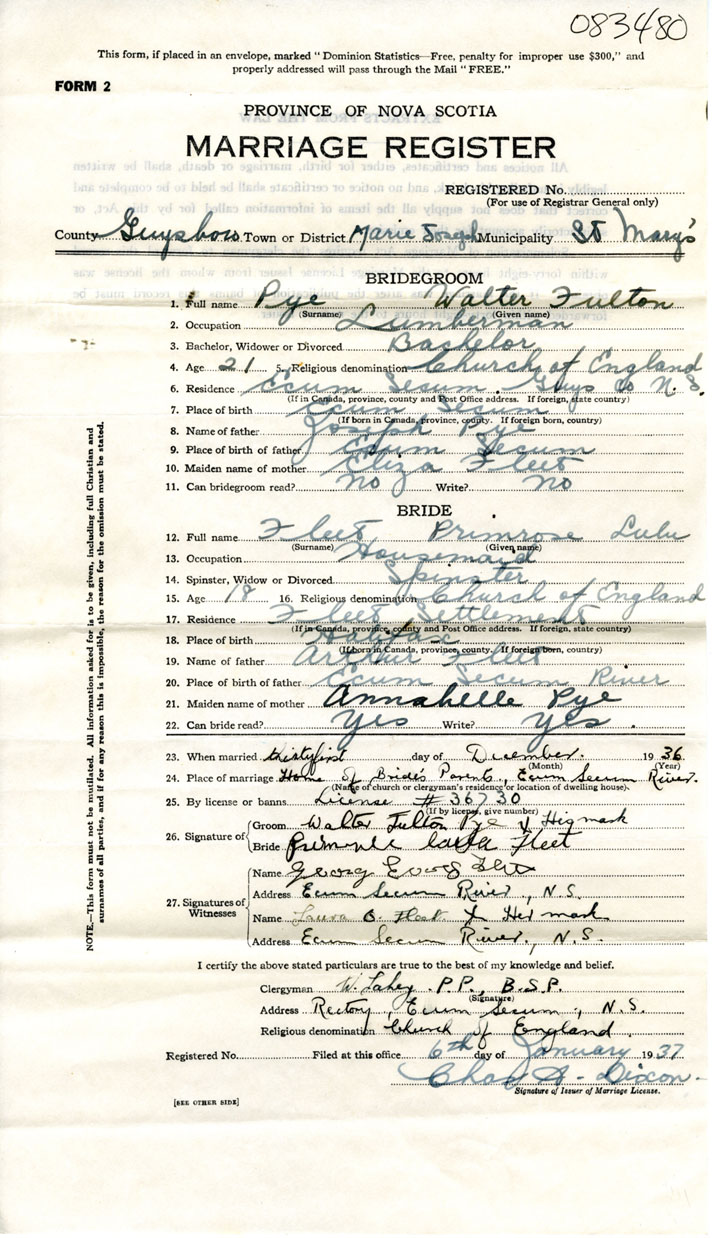 083480
This form, if placed in an envelope, marked "Dominion Statistics—Free, penalty for improper use $300," and
properly addressed will pass through the Mail "FREE."
FORM 2
PROVINCE OF NOVA SCOTIA
MARRIAGE REGISTER
REGISTERED No.
(For use of Registrar General only)
County Guysboro Town or District Marie Joseph Municipality St Mary's
BRIDEGROOM
1. Full name Pye Walter Fulton
(Surname) (Given name)
2. Occupation Lumberman
3. Bachelor, Widower or Divorced Bachelor
4. Age 21 5. Religious denomination Church of England
6. Residence Ecum Secum Guys Co N.S.
(If in Canada, province, county and Post Office address. If foreign, state country)
7. Place of birth Ecum Secum
(If born in Canada, province, county. If foreign born, country)
8. Name of father Joseph Pye
9. Place of birth of father Ecum Secum
10. Maiden name of mother Eliza Fleet
11. Can bridegroom read? no Write? no
BRIDE
12. Full name Fleet Primrose Lulu
(Surname) (Given name)
13. Occupation Housemaid
14. Spinster, Widow or Divorced Spinster
15. Age 18 16. Religious denomination Church of England
17. Residence Fleet Settlement
(If in Canada, province, county and Post Office address. If foreign, state country)
18. Place of birth Halifax
(If born in Canada, province, county. If foreign born, country)
19. Name of father Arthur Fleet
20. Place of birth of father Ecum Secum River
21. Maiden name of mother Annabelle Pye
22. Can bride read? yes Write? yes
23. When married thirtyfirst day of December 1936
(Month) (Year)
24. Place of marriage Home of Bride's Parents, Ecum Secum River.
(Name of church or clergyman's residence or location of dwelling house)
25. By license or banns License # 36730
(If by license, give number)
26. Signature of
Groom Walter Fulton Pye X His mark
Bride Fleet
27. Signatures of Witnesses
Name Georg Fleet
Address Ecum Secum River, N.S.
Name Laura O. Fleet X Her mark
Address Ecum Secum River, N.S.
I certify the above stated particulars are true to the best of my knowledge and belief.
Clergyman W. Lahey P.P., B.S.P.
(Signature)
Address Rectory, Ecum Secum, N.S.
Religious denomination Church of England
Registered No. Filed at this office 6th day of January 1937
Chas A. Dixon
Signature of Issuer of Marriage License.
[SEE OTHER SIDE]
NOTE.—This form must not be mutilated. All information asked for is to be given, including full Christian and
surnames of all parties, and if for any reason this is impossible, the reason for the omission must be stated.